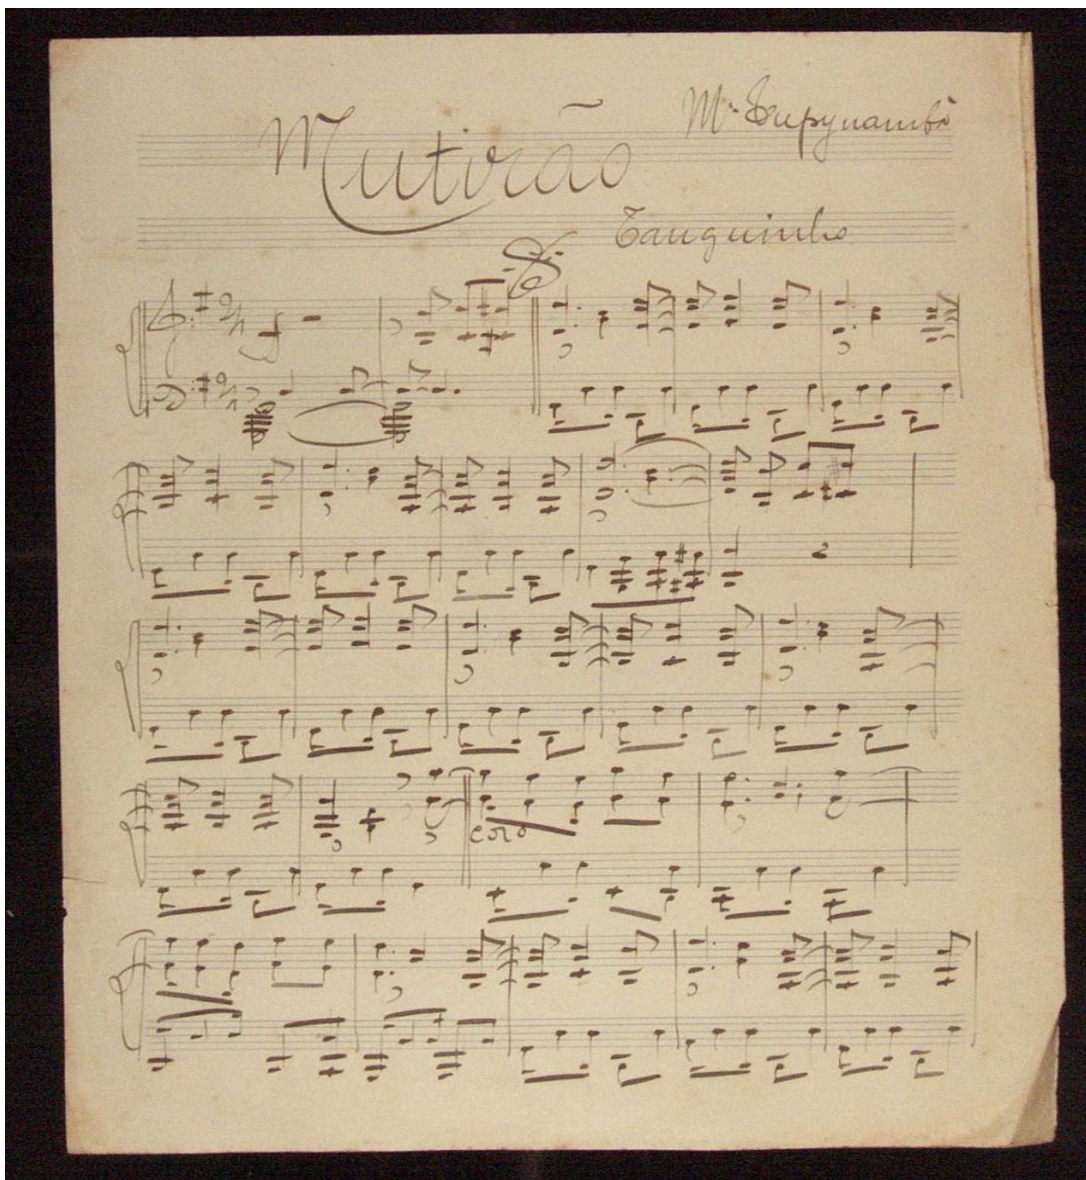 Mutirão
M. Tupynambá
Tanguinho
coro